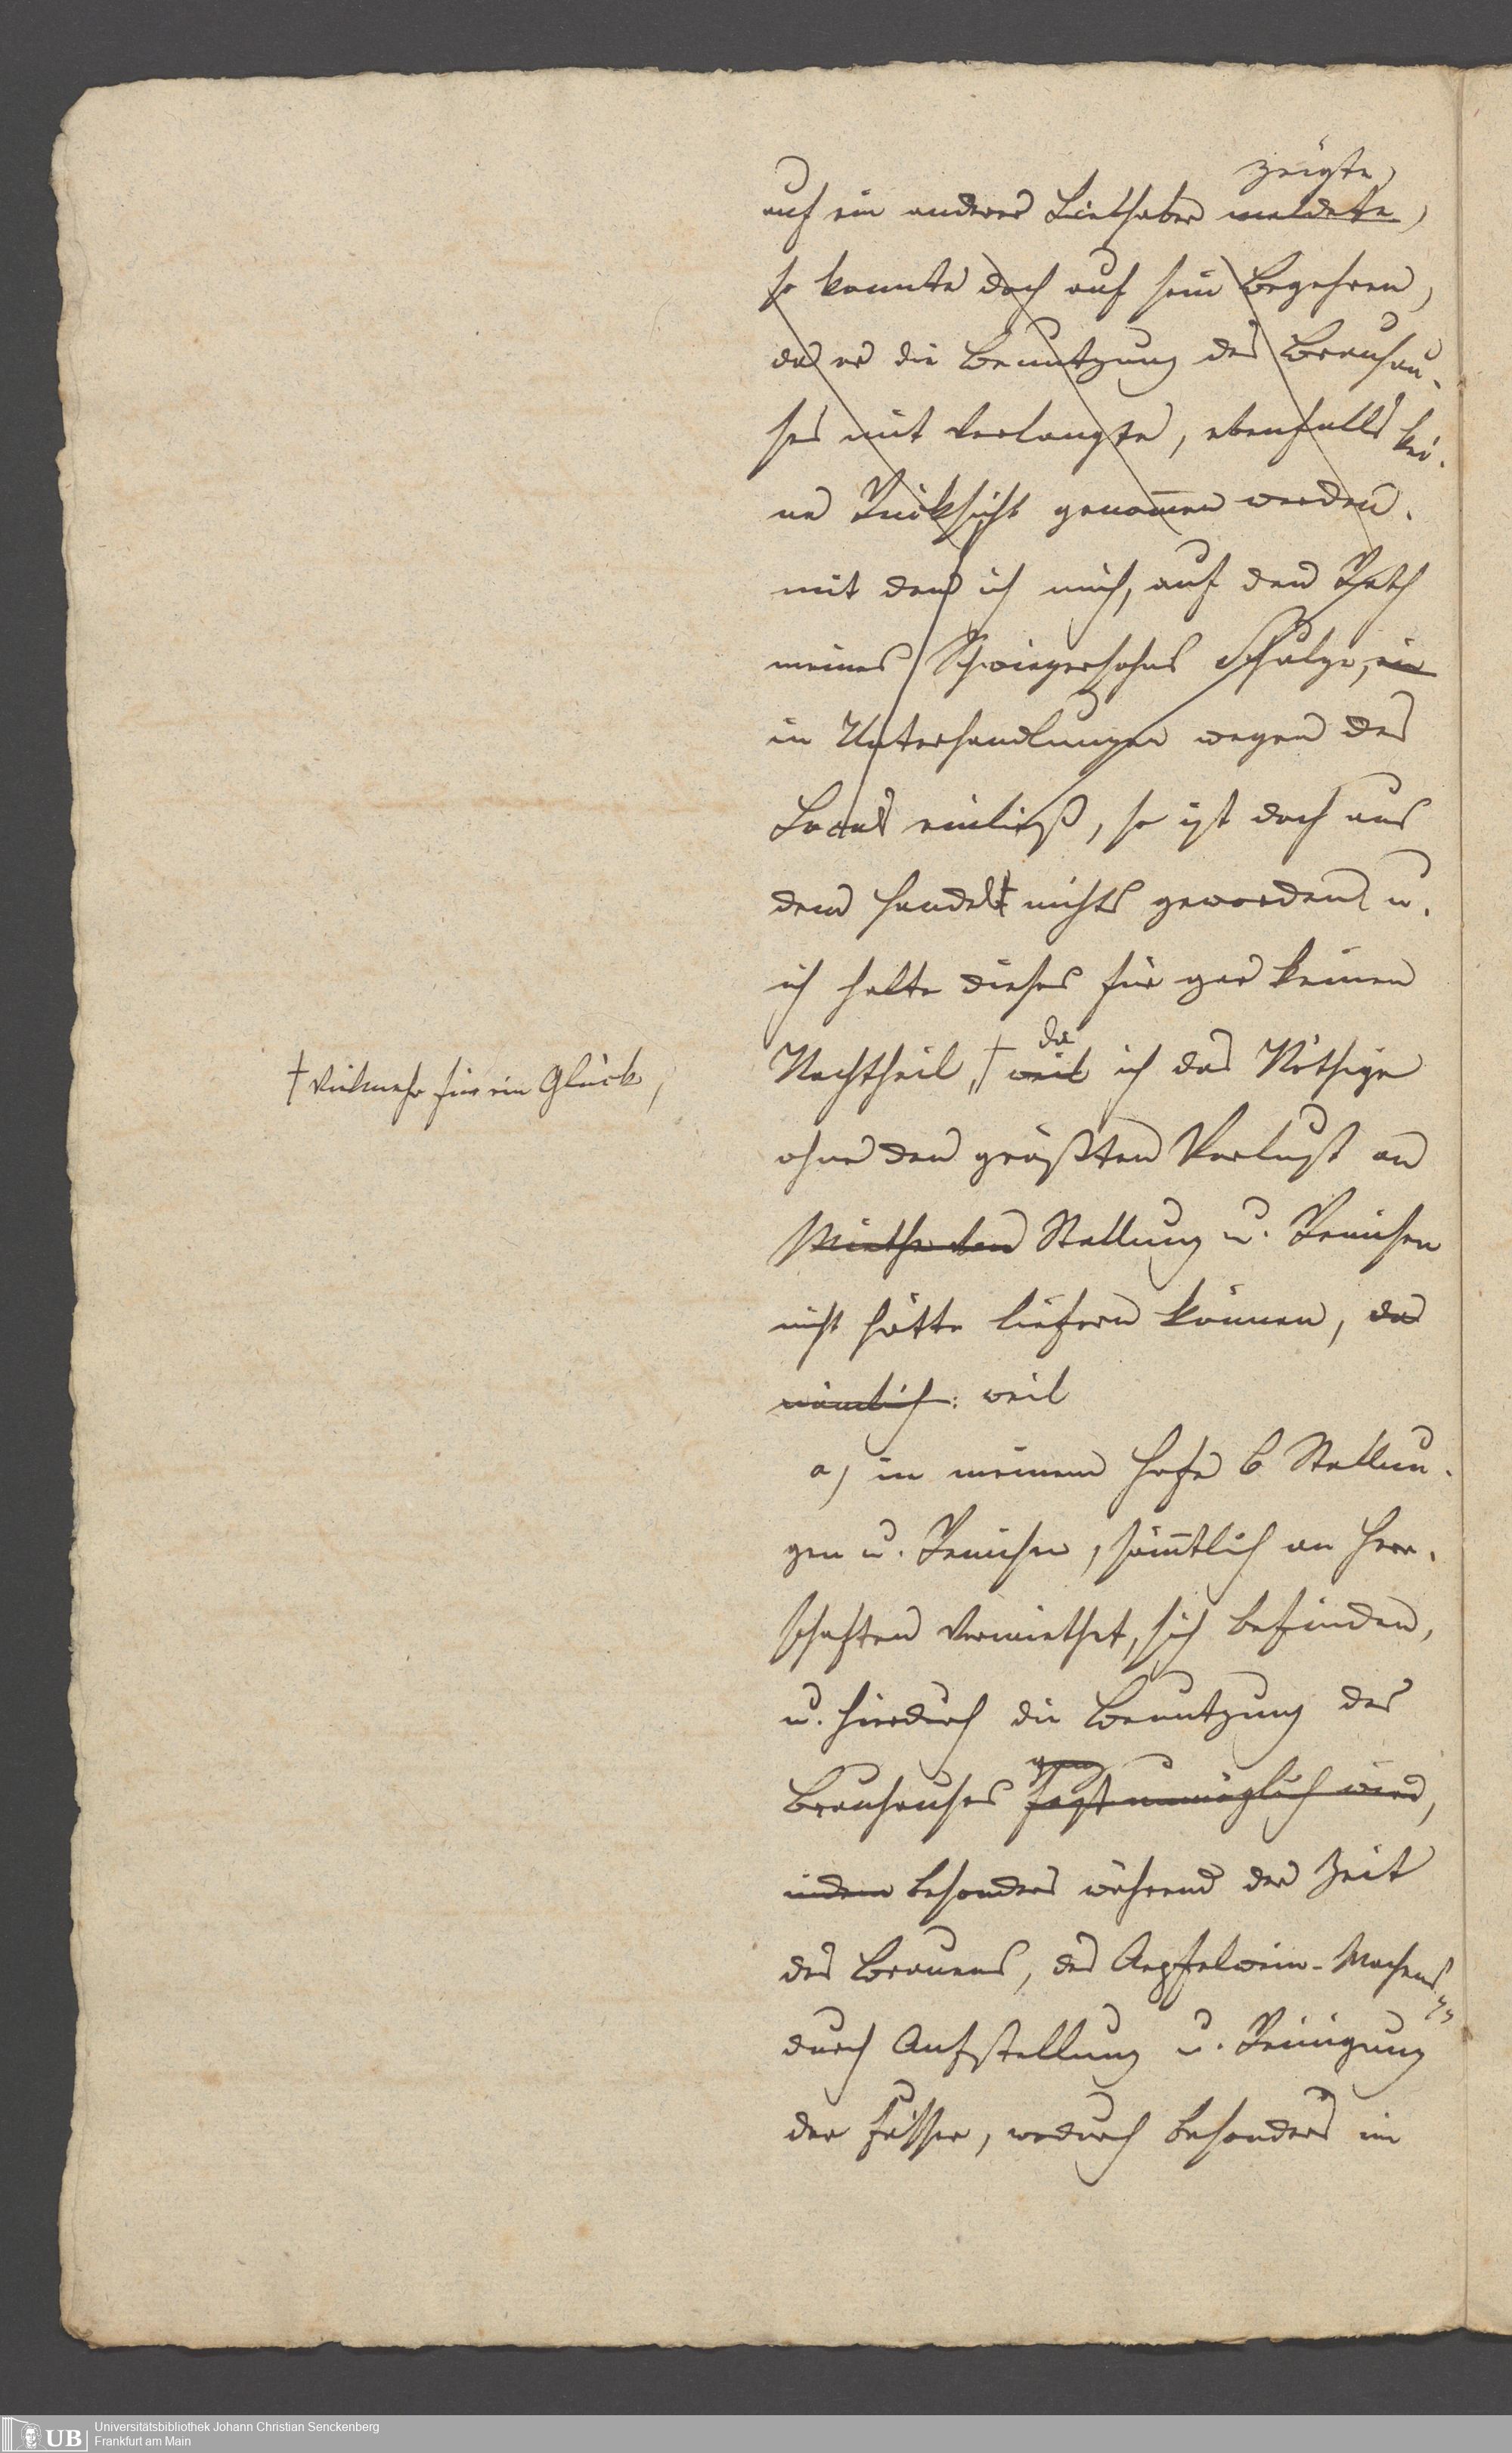 zeigte,
auf ein anderer Liebhaber meldete,
so konnte doch auf sein Begehren,
da er die Benutzung des Brauhau-
ses mit verlangte, ebenfalls kei-
ne Rücksicht genommen werden.
mit dem ich mich, auf den Rath
meines Schwiegersohns Schulze, ein
in Unterhandlungen wegen des
Locals einließ, so ist doch aus
dem Handel nichts geworden, u.
ich halte dieses für gar keinen
da
Nachtheil, † weil ich das Nöthige
† vielmehr für ein Glück,
ohne den größten Verlust an
Miethe den Stallung u. Remisen
nicht hätte liefern können, da
nämlich: weil
a, in meinem Hofe 6 Stallun-
gen u. Remisen, sämtlich an Herr-
schaften vermiethet, sich befinden,
u. hierdurch die Benutzung des
ganz
Brauhauses fast unmöglich wird,
indem besonders während der Zeit
des Brauens, des Aepfelwein-Machens
durch Aufstellung u. Reinigung
der Fässer, wodurch besonders im
UB
Universitätsbibliothek Johann Christian Senckenberg
Frankfurt am Main